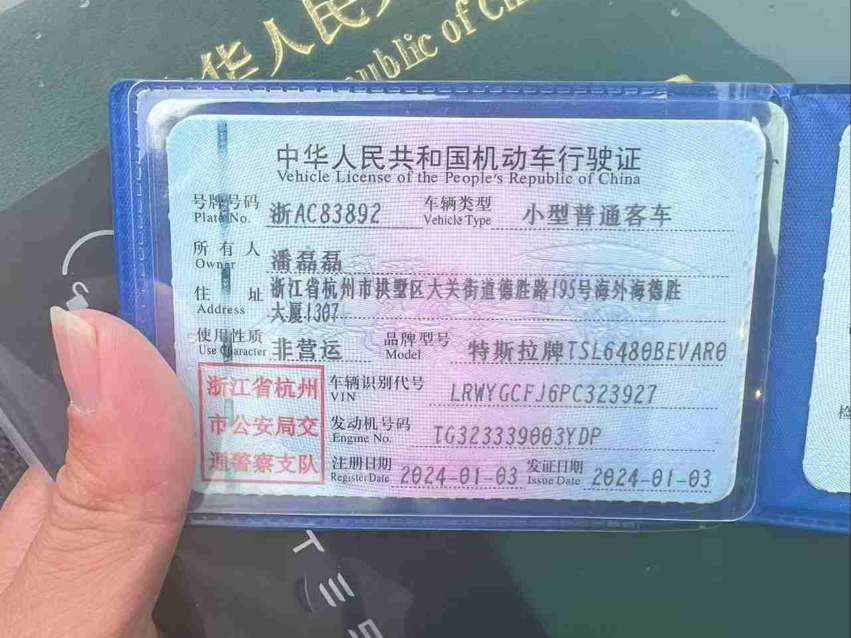 中华人民共
public of Ch
中华人民共和国机动车行驶证
Vehicle License of the People's Republic of China
号牌号码 浙AC83892 车辆类型 小型普通客车
Plate No. Vehicle Type
所有人 潘磊磊
Owner
住址 浙江省杭州市拱墅区大关街道德胜路195号海外海德胜
Address 大厦1307
使用性质 非营运 品牌型号 特斯拉牌TSL6480BEVAR0
Use Character Model
浙江省杭州
市公安局交
通警察支队
车辆识别代号 LRWYGCFJ6PC323927
VIN
发动机号码 TG323339003YDP
Engine No.
注册日期 2024-01-03 发证日期 2024-01-03
Register Date Issue Date
检
TES